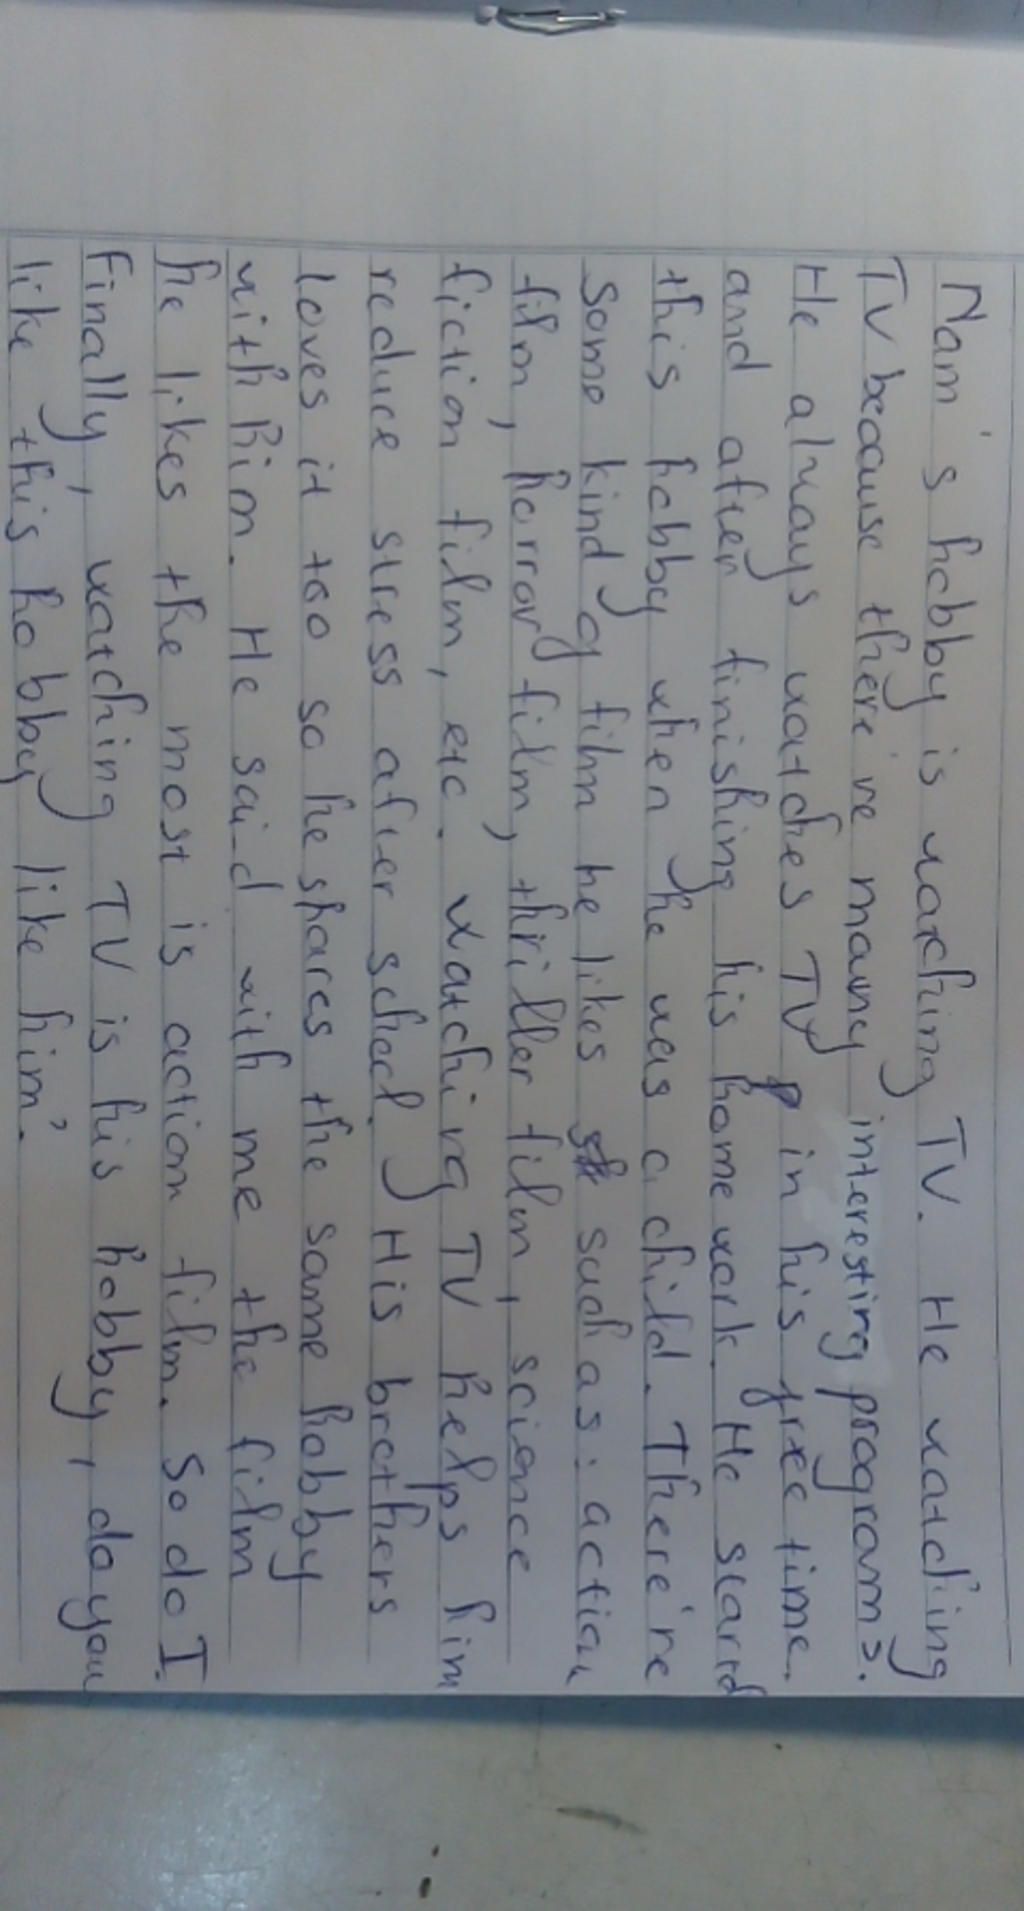 Nam's hobby is watching TV. He watching
TV because there're many interesting programs.
He always watches TV in his free time.
and after finishing his home work. He stard
this hobby when he was a child. There're
Some kind of film he likes such as: action
film, horror film, thriller film, science
fiction film, etc. Watching TV helps him
reduce stress after school. His brothers
loves it too so he shares the same hobby
with him. He said with me the film
he likes the most is action film. So do I.
Finally, watching TV is his hobby, do you
like this hobby like him?